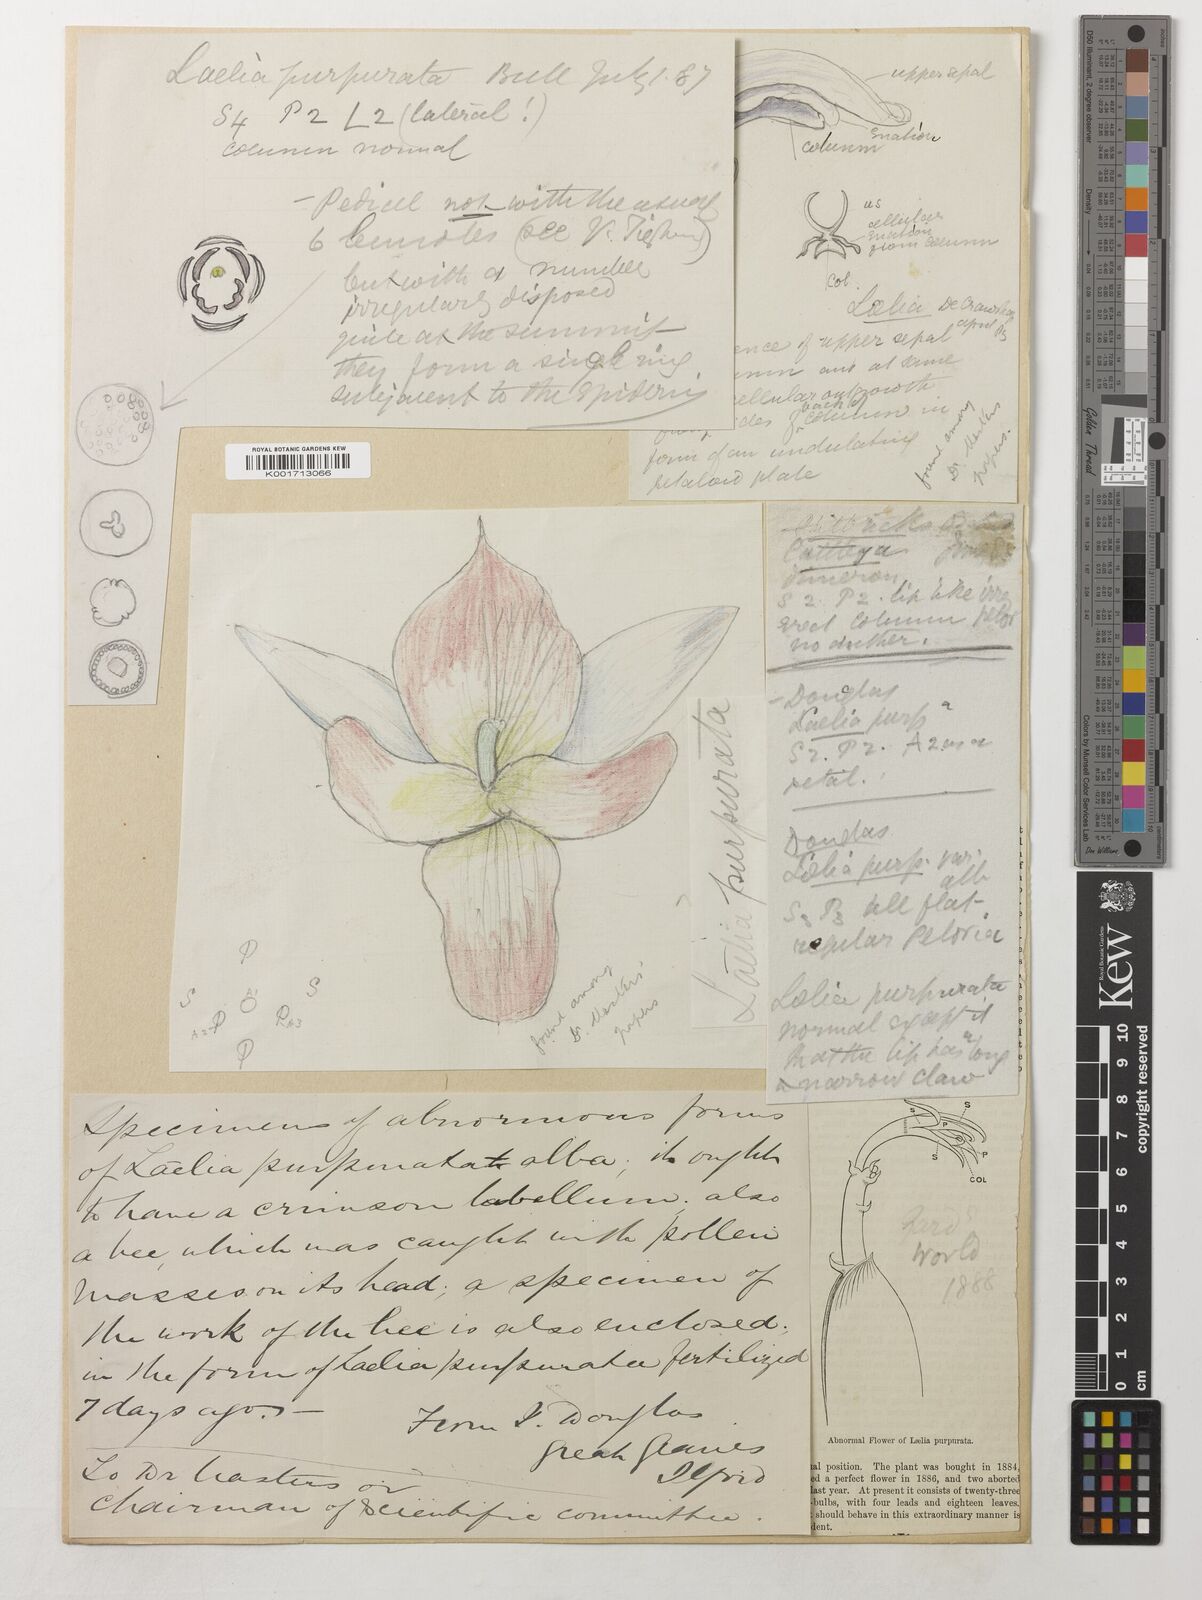 Laelia purpurata Bull July 1. 87
S4 P2 L2 (lateral!)
column normal
- Pedicel not with the usual
6 bundles (see V. Tieghem)
but with a number
irregularly disposed
quite at the summit
they form a single ring
subjacent to the epidermis
upper sepal
Enation
column
us
cellular
enation
from column
Col.
Laelia De Crawshay
april 95
ence of upper sepal
umn and at same
cellular outgrowth
from sides & back of column in
form of an undulating
petaloid plate
found among
Dr. Masters
papers.
ROYAL BOTANIC GARDENS KEW
K001713066
Cattleya
dimerous
S 2. P 2. lip like irreg
erect column petal
no anther.
- Douglas
Laelia purpa
S2. P2. A2 as a
petal.
Douglas
Laelia purp. var.
alb
S3 P3 all flat-
regular Peloria
Laelia purpurata
normal except it
that the lip has a long
narrow claw
? Laelia purpurata
P
S S
A1
A2 P P A3
P
found among
Dr. Masters'
papers
Specimens of abnormous forms
of Laelia purpurata alba; it ought
to have a crimson labellum. also
a bee, which was caught with pollen
masses on its head; a specimen of
the work of the bee is also enclosed;
in the form of Laelia purpurata fertilized
7 days ago. —
From J. Douglas
Great Gearies
Ilford
To Dr Masters or
Chairman of Scientific committee.
S S
P
P
S
COL
B
Gard
World
1888
Abnormal Flower of Lælia purpurata.
al position. The plant was bought in 1884,
ed a perfect flower in 1886, and two aborted
last year. At present it consists of twenty-three
-bulbs, with four leads and eighteen leaves.
should behave in this extraordinary manner is
dent.
D50 Illuminant, 2 degree observer
Density
Golden Thread
Colors by Munsell Color Services Lab
Don Williams
inches
Royal Botanic Gardens
Kew
copyright reserved
0 1 2 3 4 5 6 7 8 9 10
cm